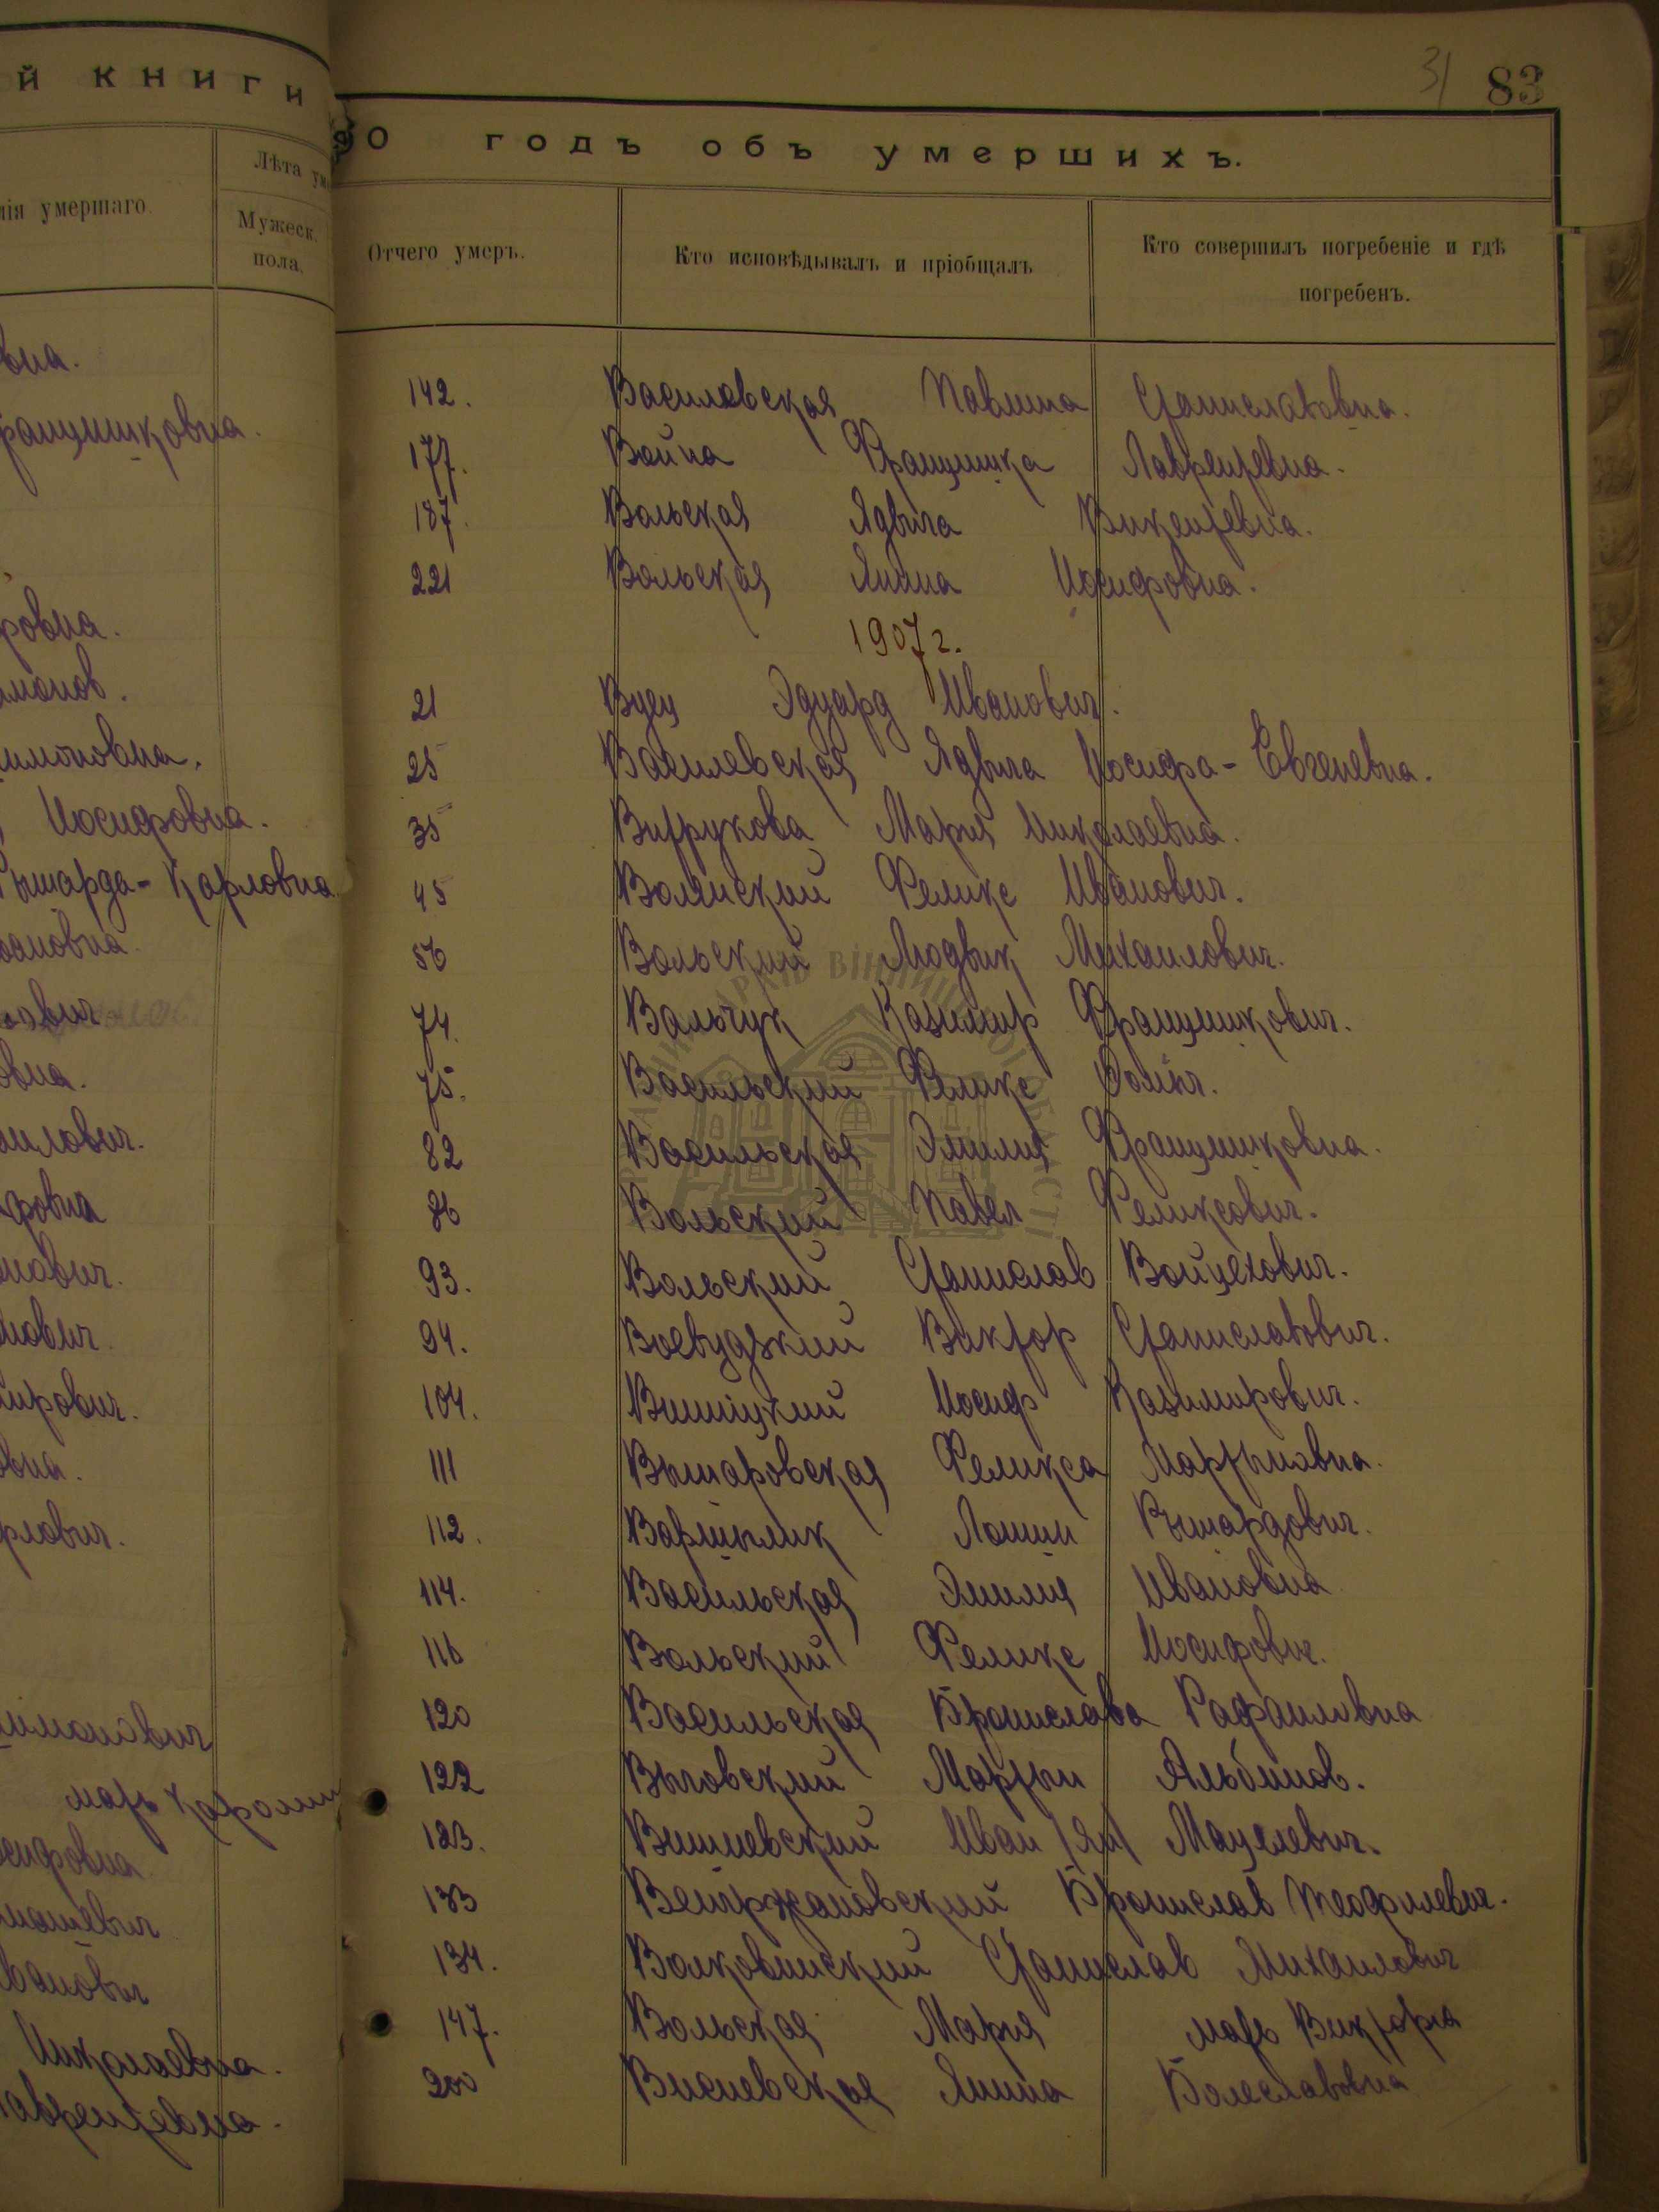 й книги
90 годъ объ умершихъ.
31 83
Лѣта
лія умершаго.
Мужеск.
пола.
Отчего умеръ.
Кто исповѣдывалъ и пріобщалъ
Кто совершилъ погребеніе и гдѣ
погребенъ.
вна.
ранцишковна.
ровна.
имоновна.
Иосифовна.
Карловна
ановна.
вна.
илович.
фовна
нович.
ирович.
вна.
рлович.
имонович
мать
сифовна
Николаевна.
аврентевна.
142. Василевская Павлина Станиславовна.
177. Война Францишка Лаврентевна.
187. Вольская Ядвига Викентевна.
221 Вольская Янина Иосифовна.
1907 г.
21 Вуец Эдуард Иванович.
25 Василевская Ядвига Иосифа-Евгеневна.
35 Витрукова Мария Николаевна.
45 Волянский Феликс Иванович.
56 Вольский Людвик Михаилович.
74. Вальчук Казимир Францишкович.
75. Васильский Феликс
82 Васильская Эмилия Францишковна.
86 Вольский Павел Феликсович.
93. Вольский Станислав Войцехович.
94. Воевудзкий Виктор Станиславович.
104. Иосиф Казимирович.
111 Вышаровская Феликса Мартыновна.
112. Рышардович.
114. Васильская Эмилия Ивановна
116 Вольский Феликс Иосифович.
120 Васильская Бронислава Рафаиловна
122 Выговский Мартын Альбинов.
123. Вишневский Иван /Ян/ Мацеевич.
133 Венгржановский Бронислав Теофилевич.
134. Волковинский Станислав Михаилович
147. Вольская Мария мать Виктория
200 Висневская Янина Болеславовна